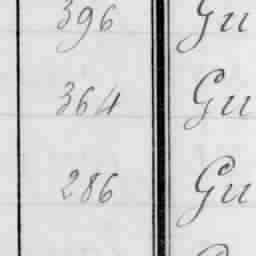 396 Gu
364 Gu
286 Gu